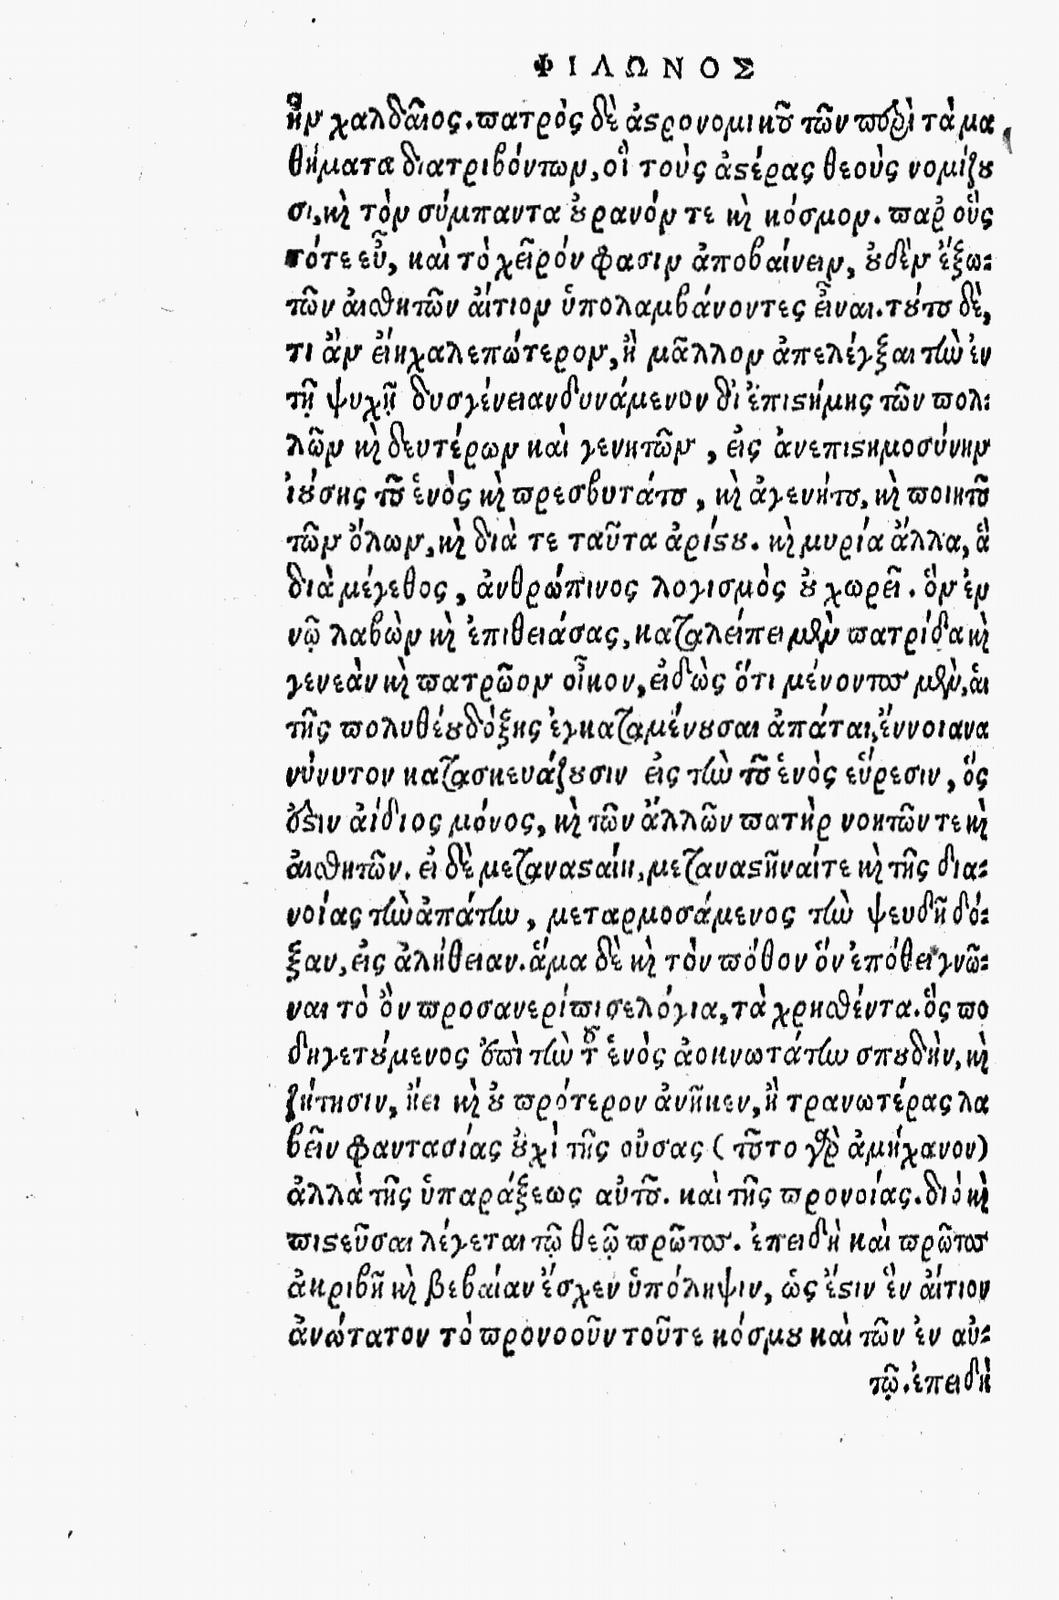 ΦΙΛΩΝΟΣ
ἦν χαλδαῖος. πατρὸς δὲ ἀστρονομικοῦ τῶν περὶ τὰ μα
θήματα διατριβόντων, οἳ τοὺς ἀστέρας θεοὺς νομίζου
σι, καὶ τὸν σύμπαντα οὐρανόν τε καὶ κόσμον. παρ οὓς
τότε εὖ, καὶ τὸ χεῖρόν φασιν ἀποβαίνειν, οὐδὲν ἔξω:
τῶν αἰσθητῶν αἴτιον ὑπολαμβάνοντες εἶναι. τούτου δὲ,
τι ἂν εἴη χαλεπώτερον, ἢ μᾶλλον ἀπελέγξαι τὴν ἐν
τῇ ψυχῇ δυσγένειαν δυνάμενον δι ἐπιστήμης τῶν πολ:
λῶν καὶ δευτέρων καὶ γενητῶν, εἰς ἀνεπιστημοσύνην
ἰούσης τοῦ ἑνὸς καὶ πρεσβυτάτου, καὶ ἀγενήτου, καὶ ποιητοῦ
τῶν ὅλων, καὶ διὰ τε ταῦτα ἀρίστου. καὶ μυρία ἄλλα, ἃ
διὰ μέγεθος, ἀνθρώπινος λογισμὸς οὐ χωρεῖ. ὃν ἐν
νῷ λαβὼν καὶ ἐπιθειάσας, καταλείπει μὲν πατρίδα καὶ
γενεὰν καὶ πατρῶον οἶκον, εἰδὼς ὅτι μένοντος μὲν, αἱ
τῆς πολυθέου δόξης ἐγκαταμένουσαι ἀπάται, ἔννοιαν ἀ
νύνυτον κατασκευάζουσιν εἰς τὴν τοῦ ἑνὸς εὕρεσιν, ὅς
ἐστιν ἀίδιος μόνος, καὶ τῶν ἄλλων πατὴρ νοητῶν τε καὶ
αἰσθητῶν. εἰ δὲ μετανασταίη, μεταναστῆναί τε καὶ τῆς δια:
νοίας τὴν ἀπάτην, μεταρμοσάμενος τὴν ψευδῆ δό:
ξαν, εἰς ἀλήθειαν. ἅμα δὲ καὶ τὸν πόθον ὃν ἐπόθει γνῶ:
ναι τὸ ὂν προσανερίπισε λόγια, τὰ χρησθέντα. ὃς πο
δηγετούμενος ἐπὶ τὴν τοῦ ἑνὸς ἀοκνωτάτην σπουδὴν, καὶ
ζήτησιν, ᾔει καὶ οὐ πρότερον ἀνῆκεν, ἢ τρανωτέρας λα
βεῖν φαντασίας οὐχὶ τῆς οὐσας (τοῦτο γὰρ ἀμήχανον)
ἀλλὰ τῆς ὑπαράξεως αὐτοῦ. καὶ τῆς προνοίας. διὸ καὶ
πιστεῦσαι λέγεται τῷ θεῷ πρῶτος. ἐπειδὴ καὶ πρῶτος
ἀκριβῆ καὶ βεβαίαν ἔσχεν ὑπόληψιν, ὡς ἔστιν ἓν αἴτιον
ἀνώτατον τὸ προνοοῦν τοῦτε κόσμου καὶ τῶν ἐν αὐ:
τῷ. ἐπειδὴ